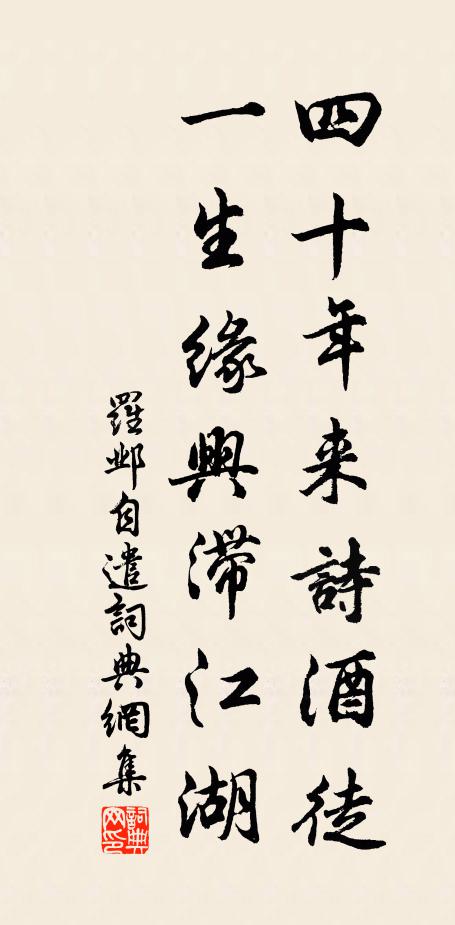 四十年来詩酒徒
一生緣興滯江湖
羅鄴自遣詞典網集
詞典网印